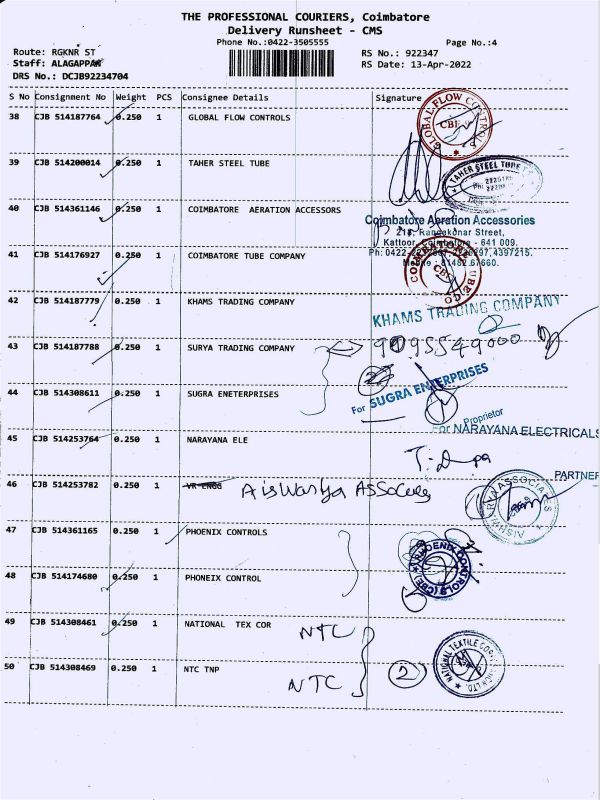 THE PROFESSIONAL COURIERS, Coimbatore
Delivery Runsheet - CMS
Phone No.:0422-3505555
Page No.:4
Route: RGKNR ST
RS No.: 922347
Staff: ALAGAPPAN
RS Date: 13-Apr-2022
DRS No.: DCJB92234704
S No Consignment No Weight PCS Consignee Details Signature
38 CJB 514187764 0.250 1 GLOBAL FLOW CONTROLS
GLOBAL FLOW CONTROLS
CBE
39 CJB 514200014 0.250 1 TAHER STEEL TUBE
TAHER STEEL TUBE
40 CJB 514361146 0.250 1 COIMBATORE AERATION ACCESSORS
Coimbatore Aeration Accessories
218, Rangakonar Street,
Kattoor, Coimbatore - 641 009.
41 CJB 514176927 0.250 1 COIMBATORE TUBE COMPANY
42 CJB 514187779 0.250 1 KHAMS TRADING COMPANY
KHAMS TRADING COMPANY
43 CJB 514187788 0.250 1 SURYA TRADING COMPANY
9095549000
44 CJB 514308611 0.250 1 SUGRA ENETERPRISES
For SUGRA ENTERPRISES
Proprietor
For NARAYANA ELECTRICALS
45 CJB 514253764 0.250 1 NARAYANA ELE
PARTNER
46 CJB 514253782 0.250 1 VR ENGG Aiswarya
AISHWARYA ASSOCIATES
47 CJB 514361165 0.250 1 PHOENIX CONTROLS
PHOENIX CONTROLS (CBE)
48 CJB 514174680 0.250 1 PHONEIX CONTROL
49 CJB 514308461 0.250 1 NATIONAL TEX COR NTC
50 CJB 514308469 0.250 1 NTC TNP NTC 2
NATIONAL TEXTILE